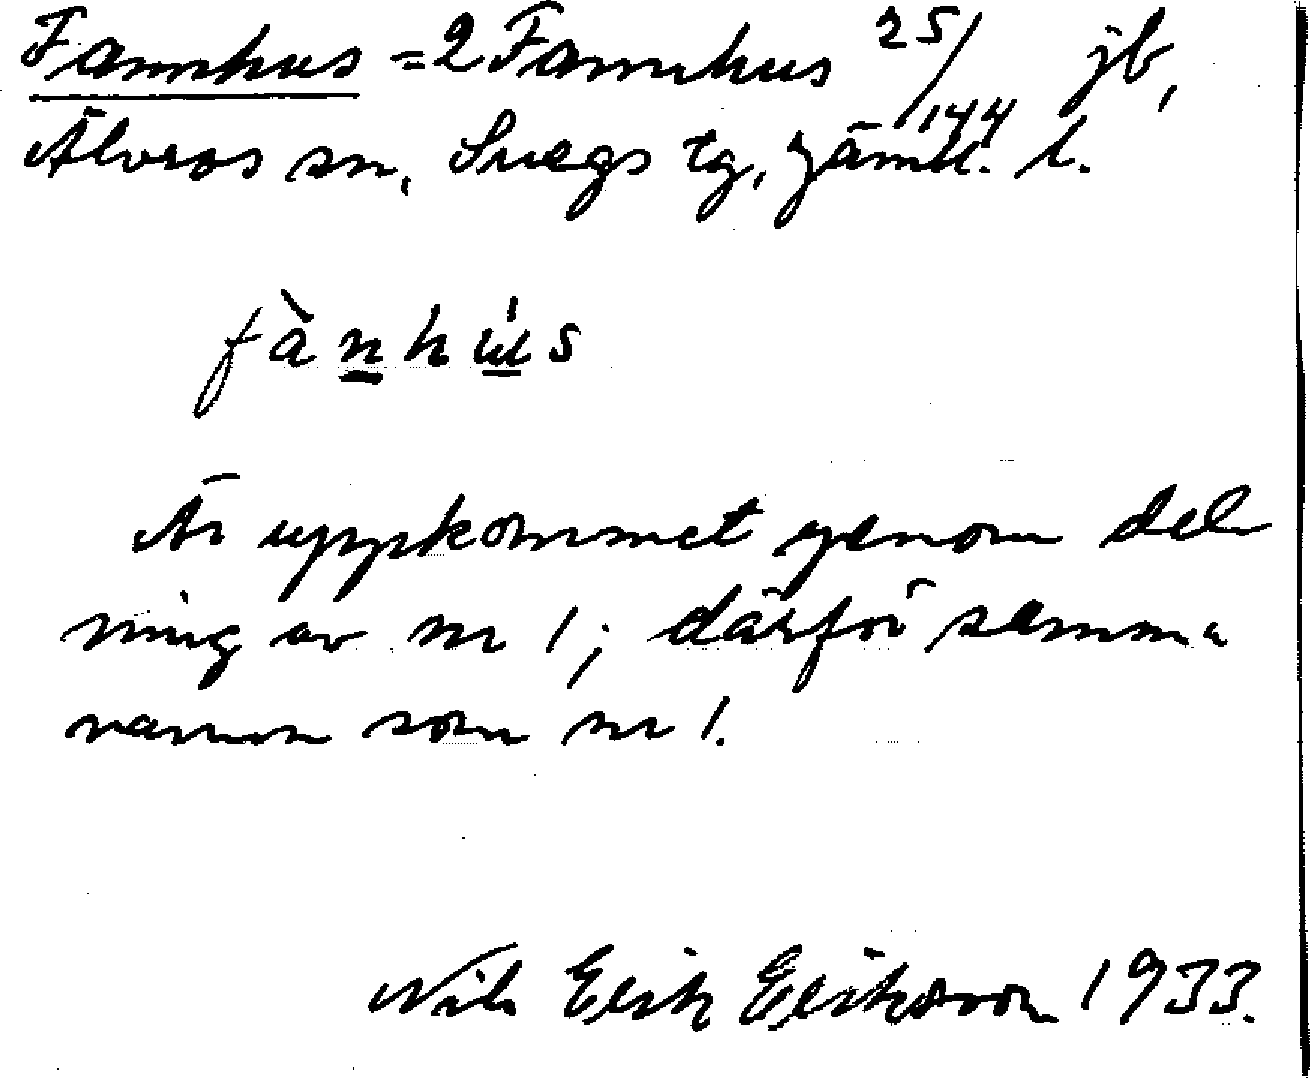 Fannhus = 2 Fannhus 25/144 jb,
Älvros sn, Svegs tg, Jämtl. l.
fànhús
Är uppkommet genom del
ning av nr 1; därför samma
namn som nr 1.
Nils Erik Eriksson 1933.